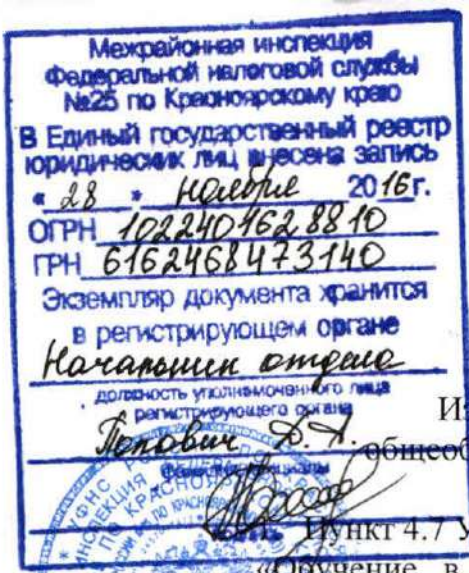 Межрайонная инспекция
Федеральной налоговой службы
№25 по Красноярскому краю
В Единый государственный реестр
юридических лиц внесена запись
« 28 » ноября 2016г.
ОГРН 1022401628810
ГРН 6162468473140
Экземпляр документа хранится
в регистрирующем органе
Начальник отдела
должность уполномоченного лица
регистрирующего органа
Попович Д.А.
Из
общеоб
Пункт 4.7 У
«Обучение в